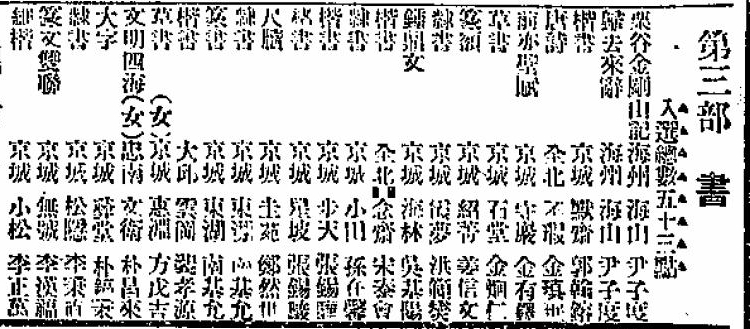 第三部 書
入選總數五十三點
栗谷金剛山記 海州 海山 尹子度
歸去來辭 海州 海山 尹子度
楷書 京城 默齋 郭
唐詩 全北 不瑕 金
前赤壁賦 京城 守巖 金有鐸
草書 京城 石堂 金炯仁
篆額 京城 紹菁 姜信文
隸書 京城 夢 洪
鍾鼎文 京城 海林 吳基陽
楷書 全北 念齋 宋泰會
隸書 京城 小田 孫在馨
楷書 京城 步天 張錫
楷書 京城 星坡 張錫
尺牘 京城 圭苑 鄭然世
隸書 京城 東 南基允
篆書 京城 東湖 南基允
楷書 大邱 雲崗 裵孝源
草書(女) 京城 惠淵 方戊吉
文明四海(女) 忠南 文 朴昌來
大字 京城 舜堂 朴
隸書 京城 松隱 李秉直
篆文雙聯 京城 無號 李漢福
細楷 京城 小松 李正